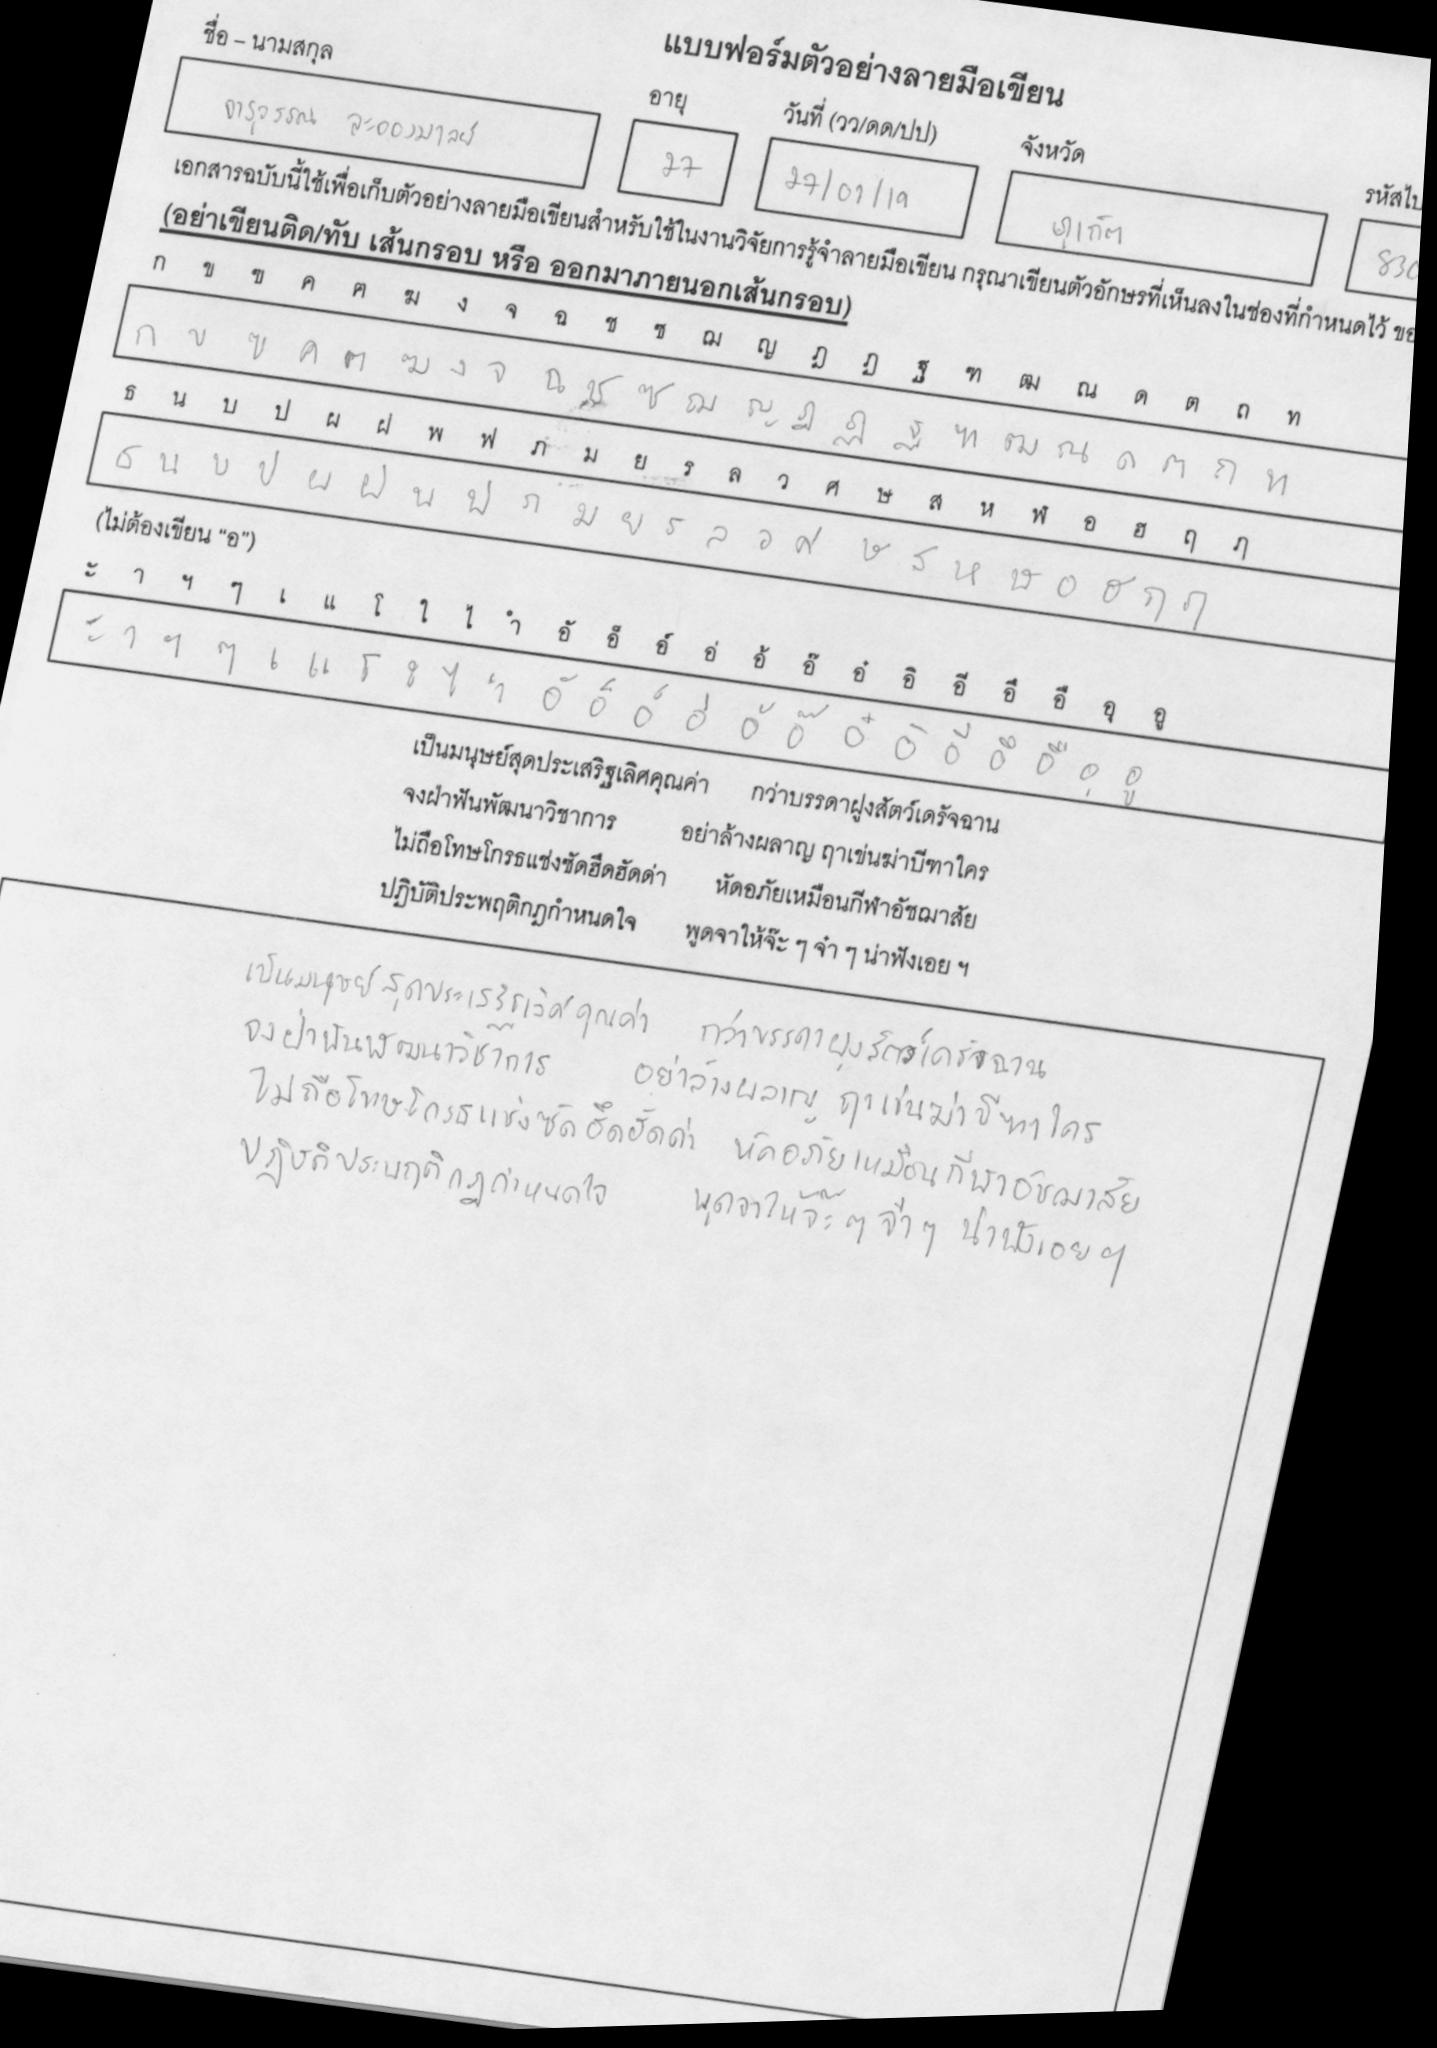 แบบฟอร์มตัวอย่างลายมือเขียน
ชื่อ – นามสกุล อายุ วันที่ (วว/ดด/ปป) จังหวัด
จารุวรรณ ละอองมาลย์ 27 27/01/19 ภูเก็ต
เอกสารฉบับนี้ใช้เพื่อเก็บตัวอย่างลายมือเขียนสำหรับใช้ในงานวิจัยการรู้จำลายมือเขียน กรุณาเขียนตัวอักษรที่เห็นลงในช่องที่กำหนดไว้
(อย่าเขียนติด/ทับ เส้นกรอบ หรือ ออกมาภายนอกเส้นกรอบ)
ก ข ฃ ค ฅ ฆ ง จ ฉ ช ซ ฌ ญ ฎ ฏ ฐ ฑ ฒ ณ ด ต ถ ท
ก ข ฃ ค ฅ ฆ ง จ ฉ ช ซ ฌ ญ ฎ ฏ ฐ ฑ ฒ ณ ด ต ถ ท
ธ น บ ป ผ ฝ พ ฟ ภ ม ย ร ล ว ศ ษ ส ห ฬ อ ฮ ฤ ฦ
ธ น บ ป ผ ฝ พ ฟ ภ ม ย ร ล ว ศ ษ ส ห ฬ อ ฮ ฤ ฦ
(ไม่ต้องเขียน "อ")
ะ า ฯ ๆ เ แ โ ใ ไ ำ อั อ็ อ์ อ่ อ้ อ๊ อ๋ อิ อี อึ อื อุ อู
ะ า ฯ ๆ เ แ โ ใ ไ ำ อั อ็ อ์ อ่ อ้ อ๊ อ๋ อิ อี อึ อื อุ อู
เป็นมนุษย์สุดประเสริฐเลิศคุณค่า กว่าบรรดาฝูงสัตว์เดรัจฉาน
จงฝ่าฟันพัฒนาวิชาการ อย่าล้างผลาญ ฤาเข่นฆ่าบีฑาใคร
ไม่ถือโทษโกรธแช่งซัดฮึดฮัดด่า หัดอภัยเหมือนกีฬาอัชฌาสัย
ปฏิบัติประพฤติกฎกำหนดใจ พูดจาให้จ๊ะ ๆ จ๋า ๆ น่าฟังเอย ฯ
เป็นมนุษย์สุดประเสริฐเลิศคุณค่า กว่าบรรดาฝูงสัตว์เดรัจฉาน
จงฝ่าฟันพัฒนาวิชาการ อย่าล้างผลาญ ฤาเข่นฆ่าบีฑาใคร
ไม่ถือโทษโกรธแช่งซัดฮึดฮัดด่า หัดอภัยเหมือนกีฬาอัชฌาสัย
ปฏิบัติประพฤติกฎกำหนดใจ พูดจาให้จ๊ะๆ จ๋าๆ น่าฟังเอยฯ